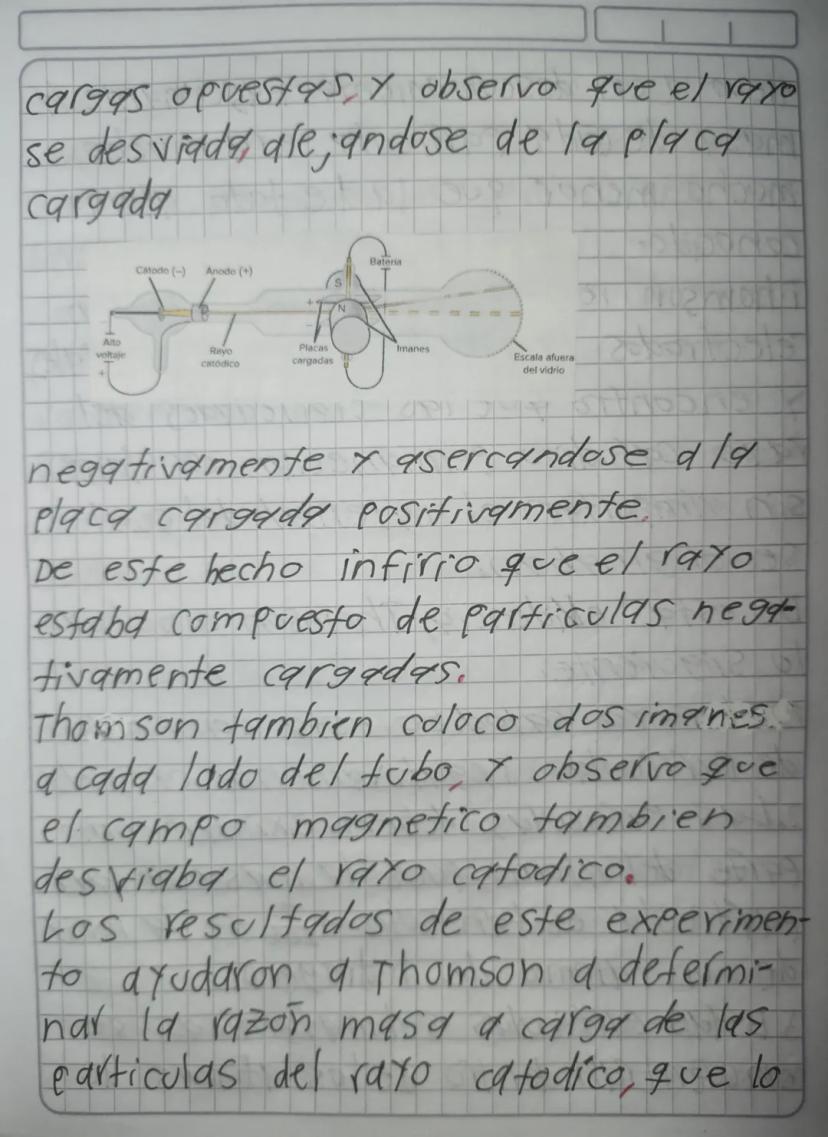 cargas opuestas, y observo que el rayo
se desviada, alejandose de la placa
cargada
Cátodo (−) Ánodo (+) Batería
S
+ N
−
Alto voltaje
+
Rayo catódico
Placas cargadas
Imanes
Escala afuera del vidrio
negativamente y asercandose a la
placa cargada positivamente.
De este hecho infirio que el rayo
estaba compuesto de particulas nega-
tivamente cargadas.
Thomson tambien coloco dos imanes
a cada lado del tubo, y observo que
el campo magnetico tambien
desviaba el rayo catodico.
Los resultados de este experimen-
to ayudaron a Thomson a determi-
nar la razón masa a carga de las
particulas del rayo catodico, que lo